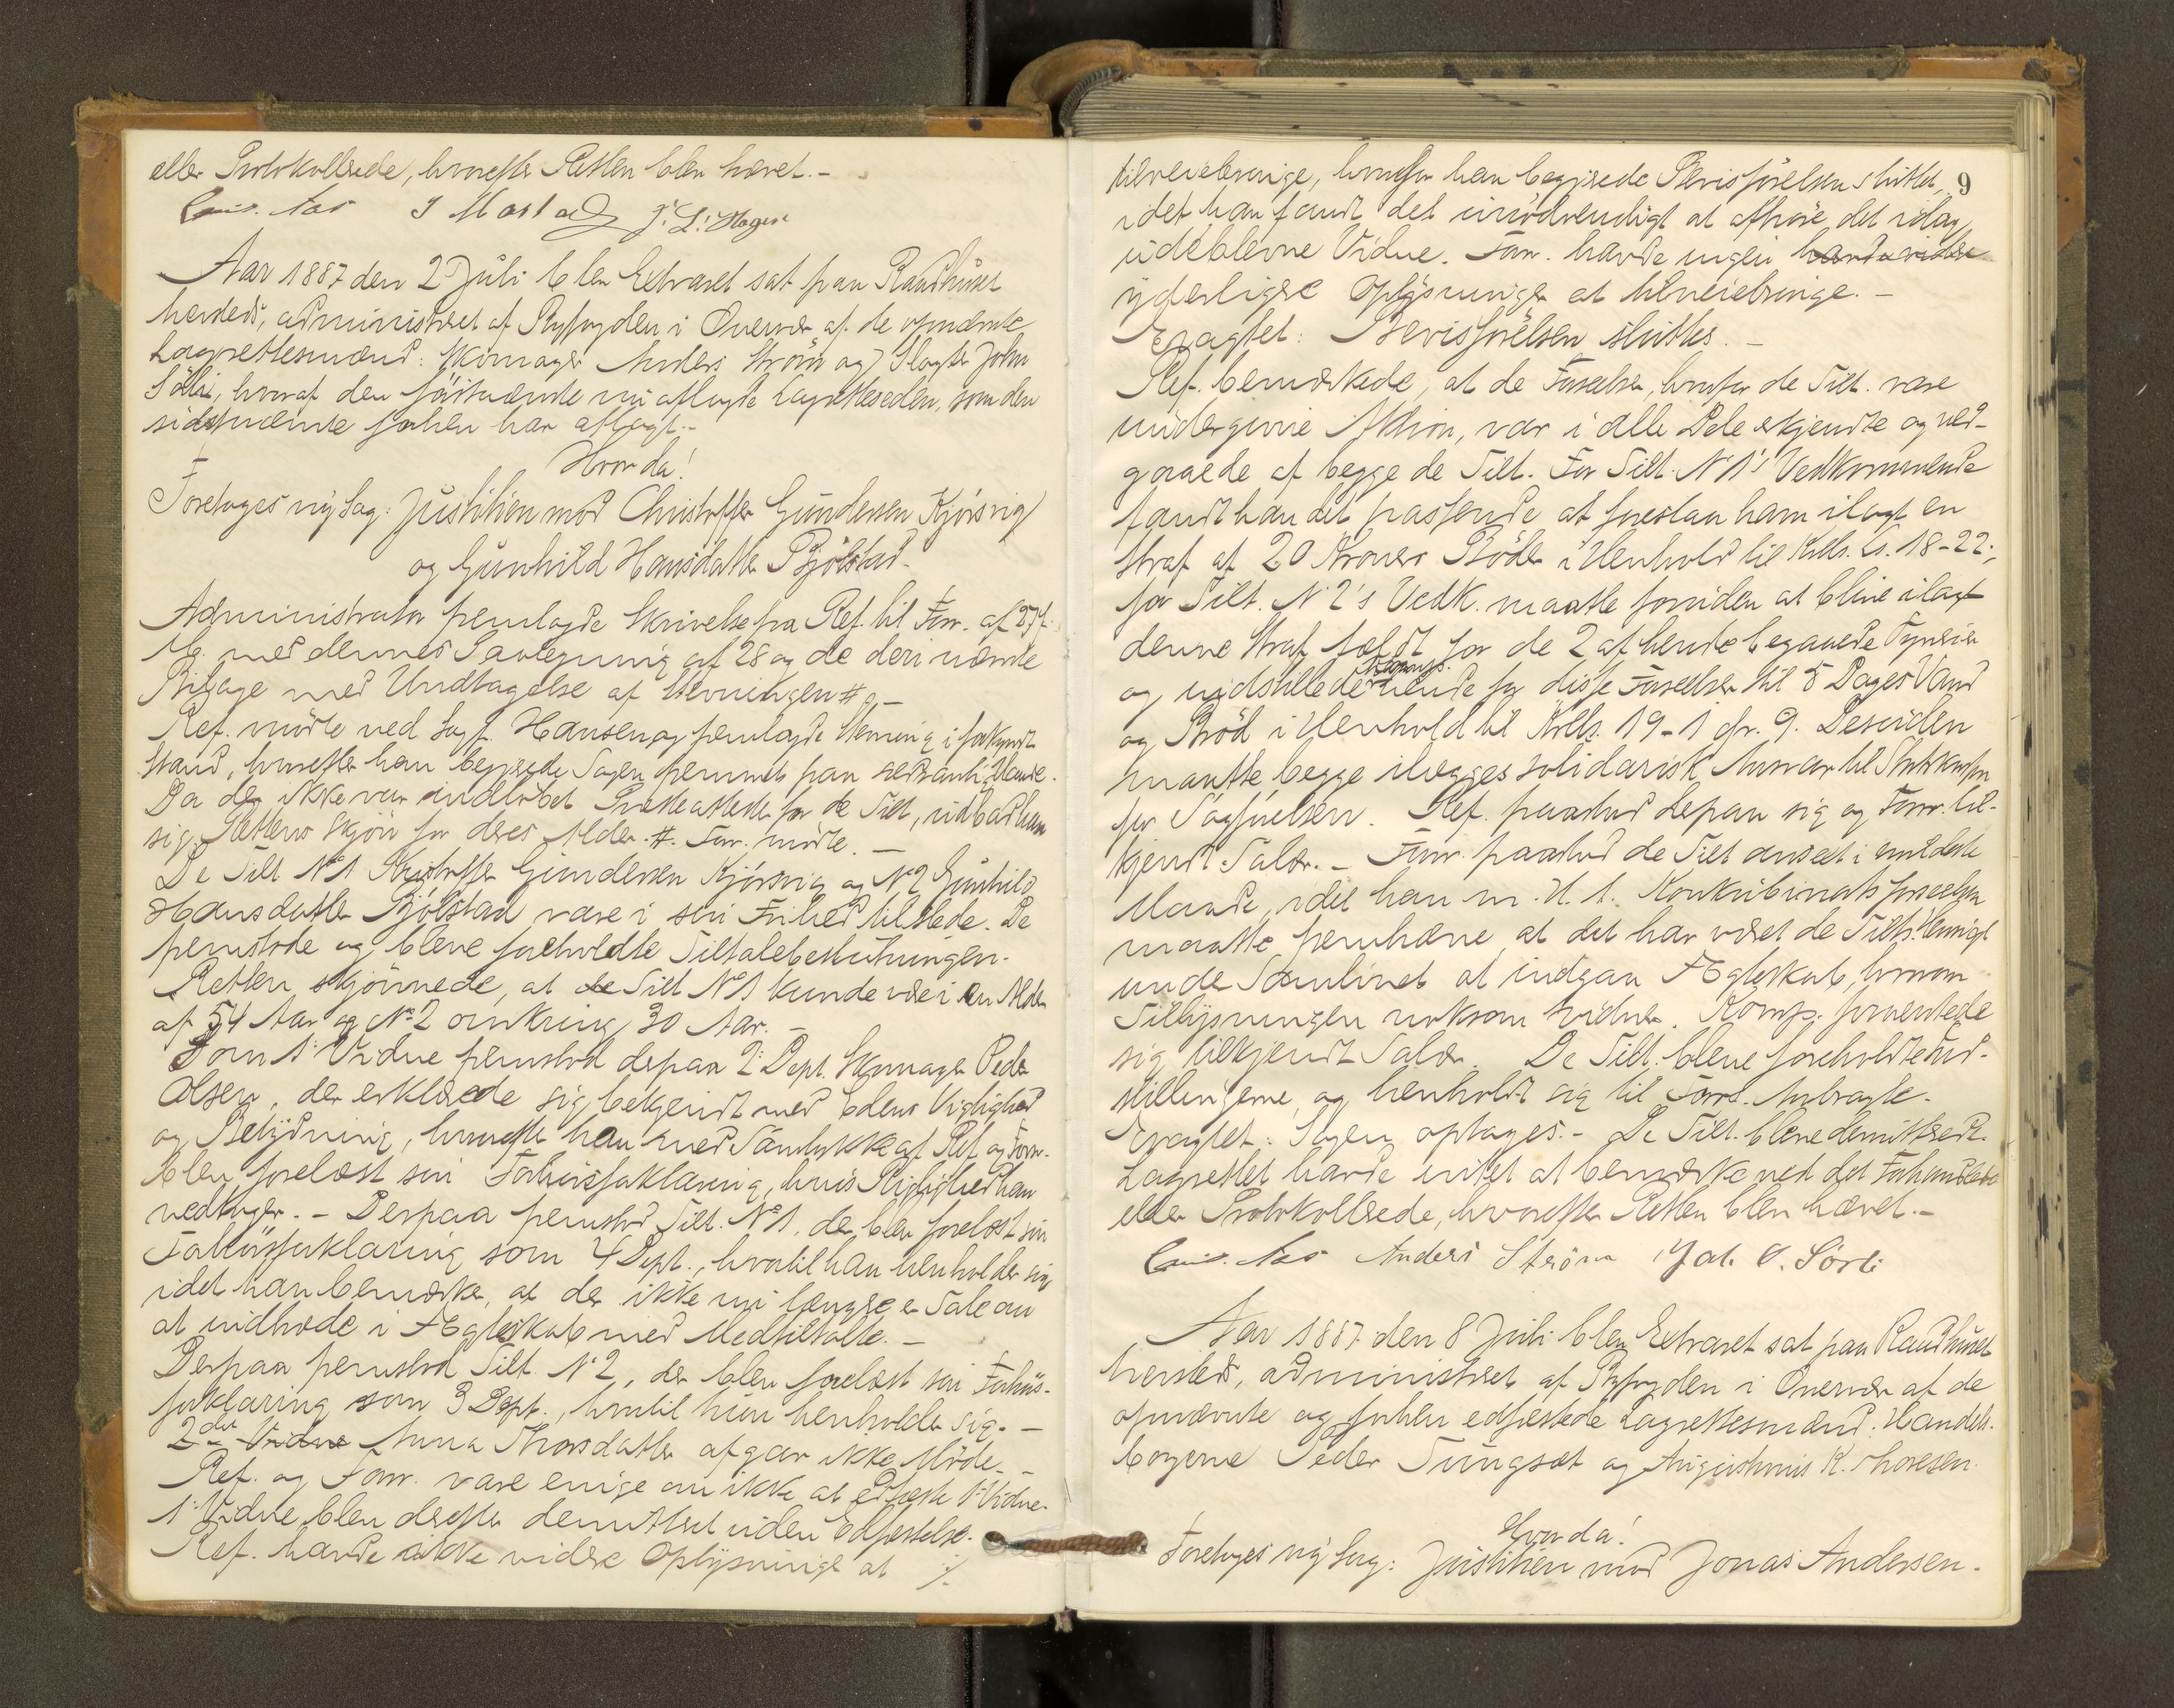 eller Protokollerede, hvorefter Retten blev hævet.-
J Mostad J. L. Hagen
Aar 1887 den 2 Juli blev Extraret sat paa Raadhuset
hersteds, administreret af Byfogden i Overvær af de opnævnte
Lagrettesmænd: Skomager Anders Strøm og Slagter John
Sörli, hvoraf den förstnævnte nu aflagde Lagretteseden, som den
sidstnævnte forhen har aflagt.-
Hvorda!
Foretages ny Sag: Justitien mod Christoffer Gundersen Kjörsvig
og Gunhild Hansdatter Bjölstad.
Administrator fremlagde Skrivelse fra Ref. til Forr. af 27 f.
M. med dennes Paategning af 28 og de deri nævnte
Bilage med Undtagelse af Stevningen # -
Ref. mödte ved Sagf. Hansen og fremlagde Stevning i forkyndt
Stand, hvorefter han begjærede Sagen fremmet paa sedvanlig Maade.
Da der ikke var indløbet Præsteattester for de Tilt, udbad han
sig Rettens Skjön for deres Alder. #. Forr. mödte. -
De Tilt No 1 Kristoffer Gundersen Kjörsvig og No 2 Gunhild
Hansdatter Bjölstad vare i sin Frihed tilstede. De
fremstode og bleve foreholdte Tiltalebeslutningen.
Retten skjönnede, at de Tilt No 1 kunde være i en Alder
af 54 Aar og No 2 omkring 30 Aar. -
Som 1' Vidne fremstod derpaa 2' Dept. Skomager Peder
Olsen, der erklærede sig bekjendt med Edens Vigtighed
og Betydning, hvorefter han med Samtykke af Ref. og Forr.
blev forelæst sin Forhörsforklaring, hvis Rigtighed han
vedtager. - Derpaa fremstod Tilt. No 1. der blev forelæst sin
Forhörsforklaring som 4 Dept., hvortil han henholder sig
idet han bemærker, at der ikke nu længere er Tale om
at indtræde i Ægteskab med Medtiltalte. -
Derpaa fremstod Tilt. No 2, der blev forelæst sin Forhörs-
forklaring som 3 Dept., hvortil hun henholder sig. -
2det Vidne Anna Thorsdatter afgav ikke Möde. -
Ref. og Forr. vare enige om ikke at edfæste 1' Vidne.
1' Vidne blev derefter demitteret uden Edfæstelse.
Ref. havde ikke videre Oplysninger at ./.
9
tilveiebringe, hvorfor han begjærede Bevisförelsen sluttet,
idet han fandt det unödvendigt at afhöre det idag
udeblevne Vidne. Forr. havde ingen havde videre
yderligere Oplysninger at tilveiebringe. -
Eragtet: Bevisförelsen sluttes. -
Ref. bemærkede, at de Forseelser, hvorfor de Tilt. vare
undergivne Aktion, var i alle Dele erkjendte og ved-
gaaede af begge de Tilt. For Tilt. No 1's Vedkommende
fandt han det passende at foreslaa ham ilagt en
Straf af 20 Kroners Böder i Henhold til Krlls. Cs. 18-22;
for Tilt. No 2's Vedk. maatte foruden at blive ilagt
denne Straf fældt for de 2 af hende begaaede Tyverier
og indstillede hende for disse Forseelser til 5 Dages Vand
og Bröd i Henhold til Krlls. 19-1 jfr. 9. Desuden
maatte begge ilægges solidarisk Ansvar til Statskassen
for Sagförelsen. Ref. paastod derpaa sig og Forr. til-
kjendt Salær. - Forr. paastod de Tilt anseet i mildeste
Maade, idet han m. H. t. Konkubinatsforseelsen
maatte fremhæve, at det har været de Tilts. Hensigt
under Samlivet at indgaa Ægteskab, hvorom
Tillysningen noksom vidner. Komp. forventede
sig tilkjendt Salær. De Tilt. bleve foreholdte Ind-
stillingerne, og henholdt sig til Forrs. Anbragte.
Eragtet: Sagen optages.- De Tilt. bleve demitterede.
Lagrettet havde intet at bemærke ved det Forhandlede
eller Protokollerede, hvorefter Retten blev hævet.-
Anders Ström Joh. O. Sörli
Aar 1887 den 8 Juli blev Extraret sat paa Raadhuset
hersteds, administreret af Byfogden i Overvær af de
opnævnte og forhen edfæstede Lagrettesmænd: Handels-
borgerne Peder Tungsæt og Augustinius K. Thoresen.
Hvorda!
Foretages ny Sag: Justitien mod Jonas Andersen.